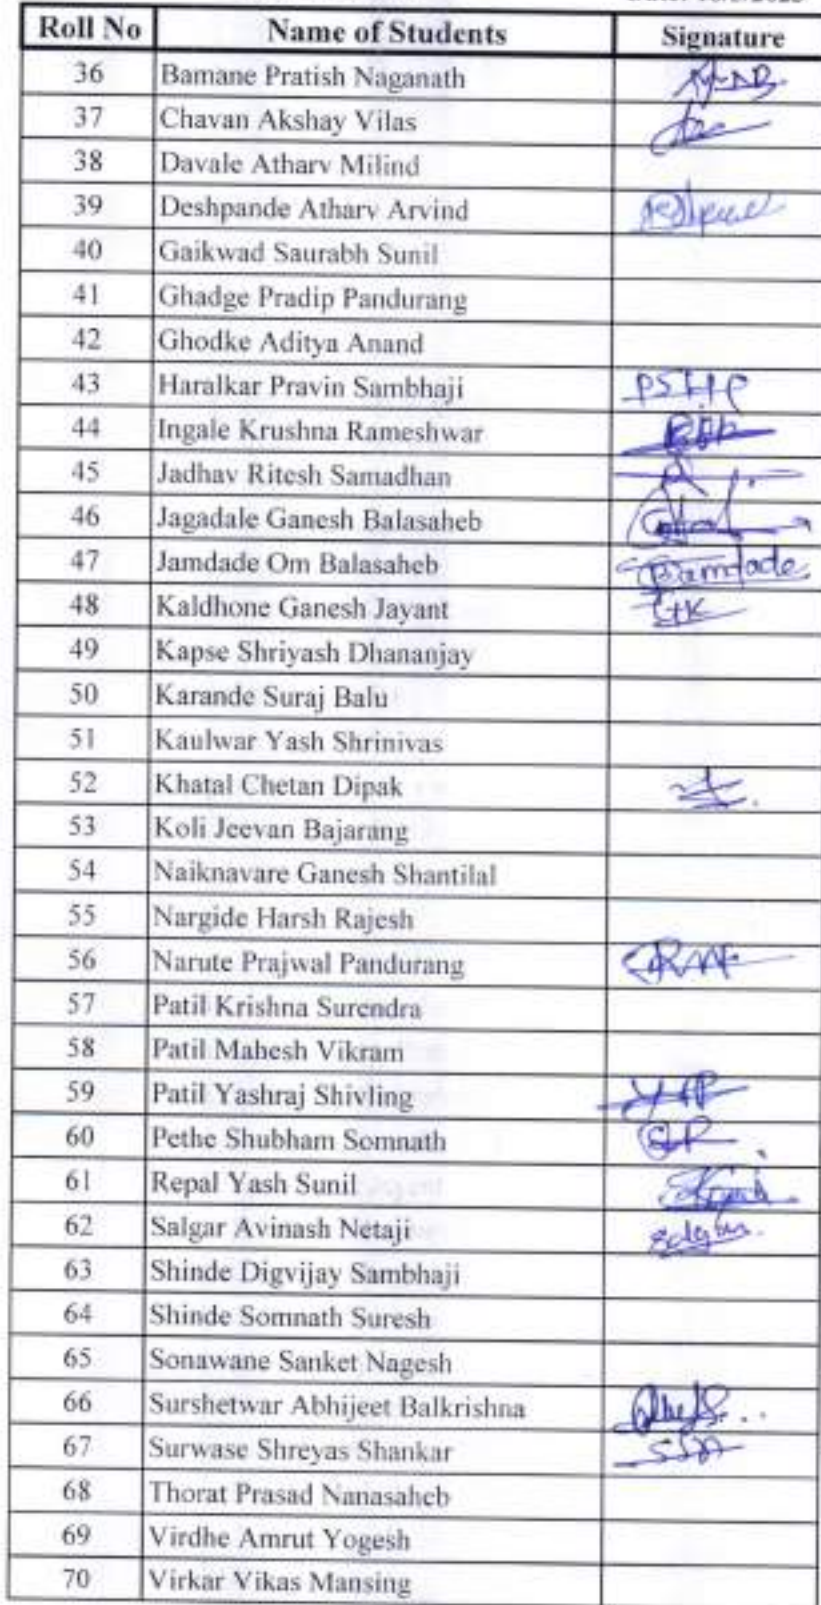 Roll No Name of Students Signature
36 Bamane Pratish Naganath
37 Chavan Akshay Vilas
38 Davale Atharv Milind
39 Deshpande Atharv Arvind
40 Gaikwad Saurabh Sunil
41 Ghadge Pradip Pandurang
42 Ghodke Aditya Anand
43 Haralkar Pravin Sambhaji PSHP
44 Ingale Krushna Rameshwar
45 Jadhav Ritesh Samadhan
46 Jagadale Ganesh Balasaheb
47 Jamdade Om Balasaheb
48 Kaldhone Ganesh Jayant GK
49 Kapse Shriyash Dhananjay
50 Karande Suraj Balu
51 Kaulwar Yash Shrinivas
52 Khatal Chetan Dipak
53 Koli Jeevan Bajarang
54 Naiknavare Ganesh Shantilal
55 Nargide Harsh Rajesh
56 Narute Prajwal Pandurang
57 Patil Krishna Surendra
58 Patil Mahesh Vikram
59 Patil Yashraj Shivling
60 Pethe Shubham Somnath
61 Repal Yash Sunil
62 Salgar Avinash Netaji
63 Shinde Digvijay Sambhaji
64 Shinde Somnath Suresh
65 Sonawane Sanket Nagesh
66 Surshetwar Abhijeet Balkrishna
67 Surwase Shreyas Shankar
68 Thorat Prasad Nanasaheb
69 Virdhe Amrut Yogesh
70 Virkar Vikas Mansing